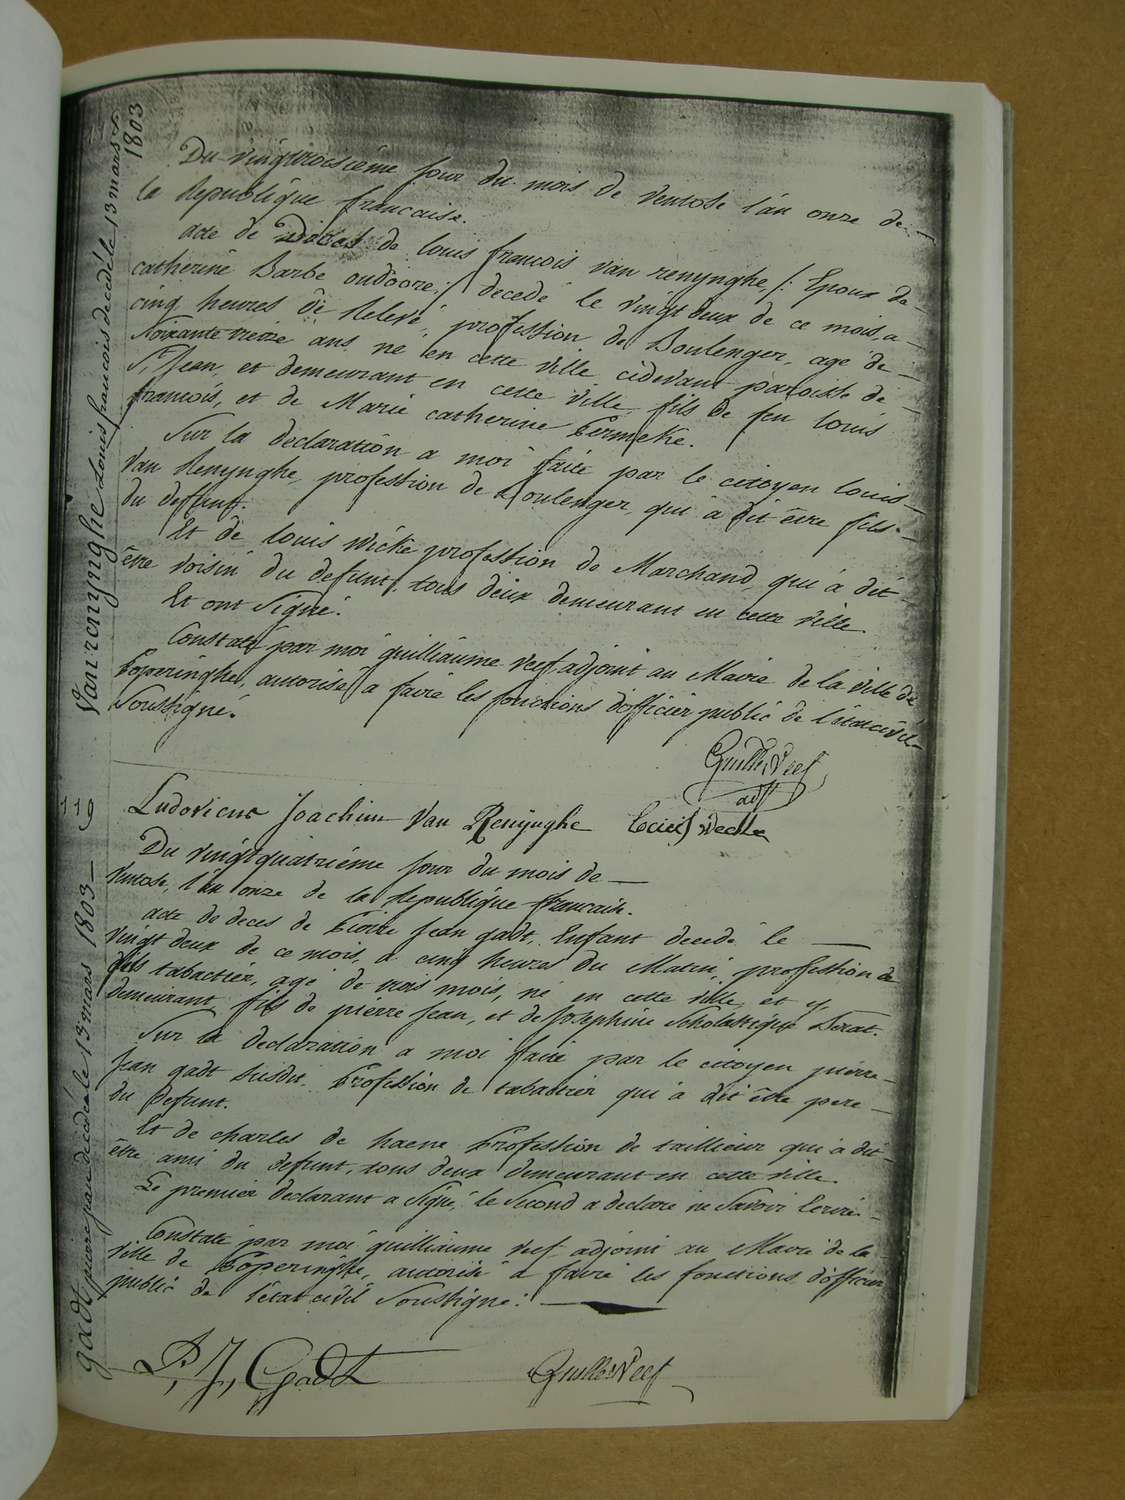 Van renynghe Louis francois decédé le 13 mars
1803
Du vingtroisiéme jour du mois de ventose l'an onze de
la Republique francaise.
acte de Décés de louis francois van renynghe, /: Epoux de
catherine Barbe oudoore :/ decedé le vingt deux de ce mois, a
cinq heures de Relevé, profession de Boulenger, agé de
Soixante treize ans, né en cette ville cidevant paroisse de
St Jean, et demeurant en cette ville, fils de feu louis
francois, et de Marie catherine Permeke.
Sur la declaration a moi faite par le citoyen louis
Van Renynghe, profession de Boulenger, qui à dit être fils
du deffunt.
Et de louis wicke profession de Marchand, qui à dit
être voisin du defunt, tous deux demeurant en cette ville.
Et ont Signé.
Constaté par moi guilliaume veef, adjoint au Maire de la ville de
Poperinghe, autorisé à faire les fonctions d'officier public de l'état civil
Soussigné.
Guille Veef
adjt
Ludovicus Joachim Van Renÿnghe
119
gadt pierre jean decédé le 13 mars 1803
Du vingtquatriéme jour du mois de
Ventose, l'an onze de la Republique francaise.
acte de deces de Pierre Jean gadt, Enfant decedé le
vingt deux de ce mois, a cinq heures du Matin, profession de
fils tabactier, agé de trois mois, né en cette ville, et y
demeurant fils de pierre Jean, et de Josephine Scholastique
Sur la declaration a moi faite par le citoyen pierre
Jean gadt susdit Profession de tabactier qui à dit être pere
du Defunt.
Et de charles de haene Profession de taillieur qui à dit
être ami du defunt, tous deux demeurant en cette ville.
Le premier declarant a Signé, le Second a declare ne Savoir Ecrire.
Constaté par moi guilliaume veef adjoint au Maire de la
ville de Poperinghe, autorisé a faire les fonctions d'officier
public de l'état civil Soussigné:
P, J, Gadt
Guille Veef